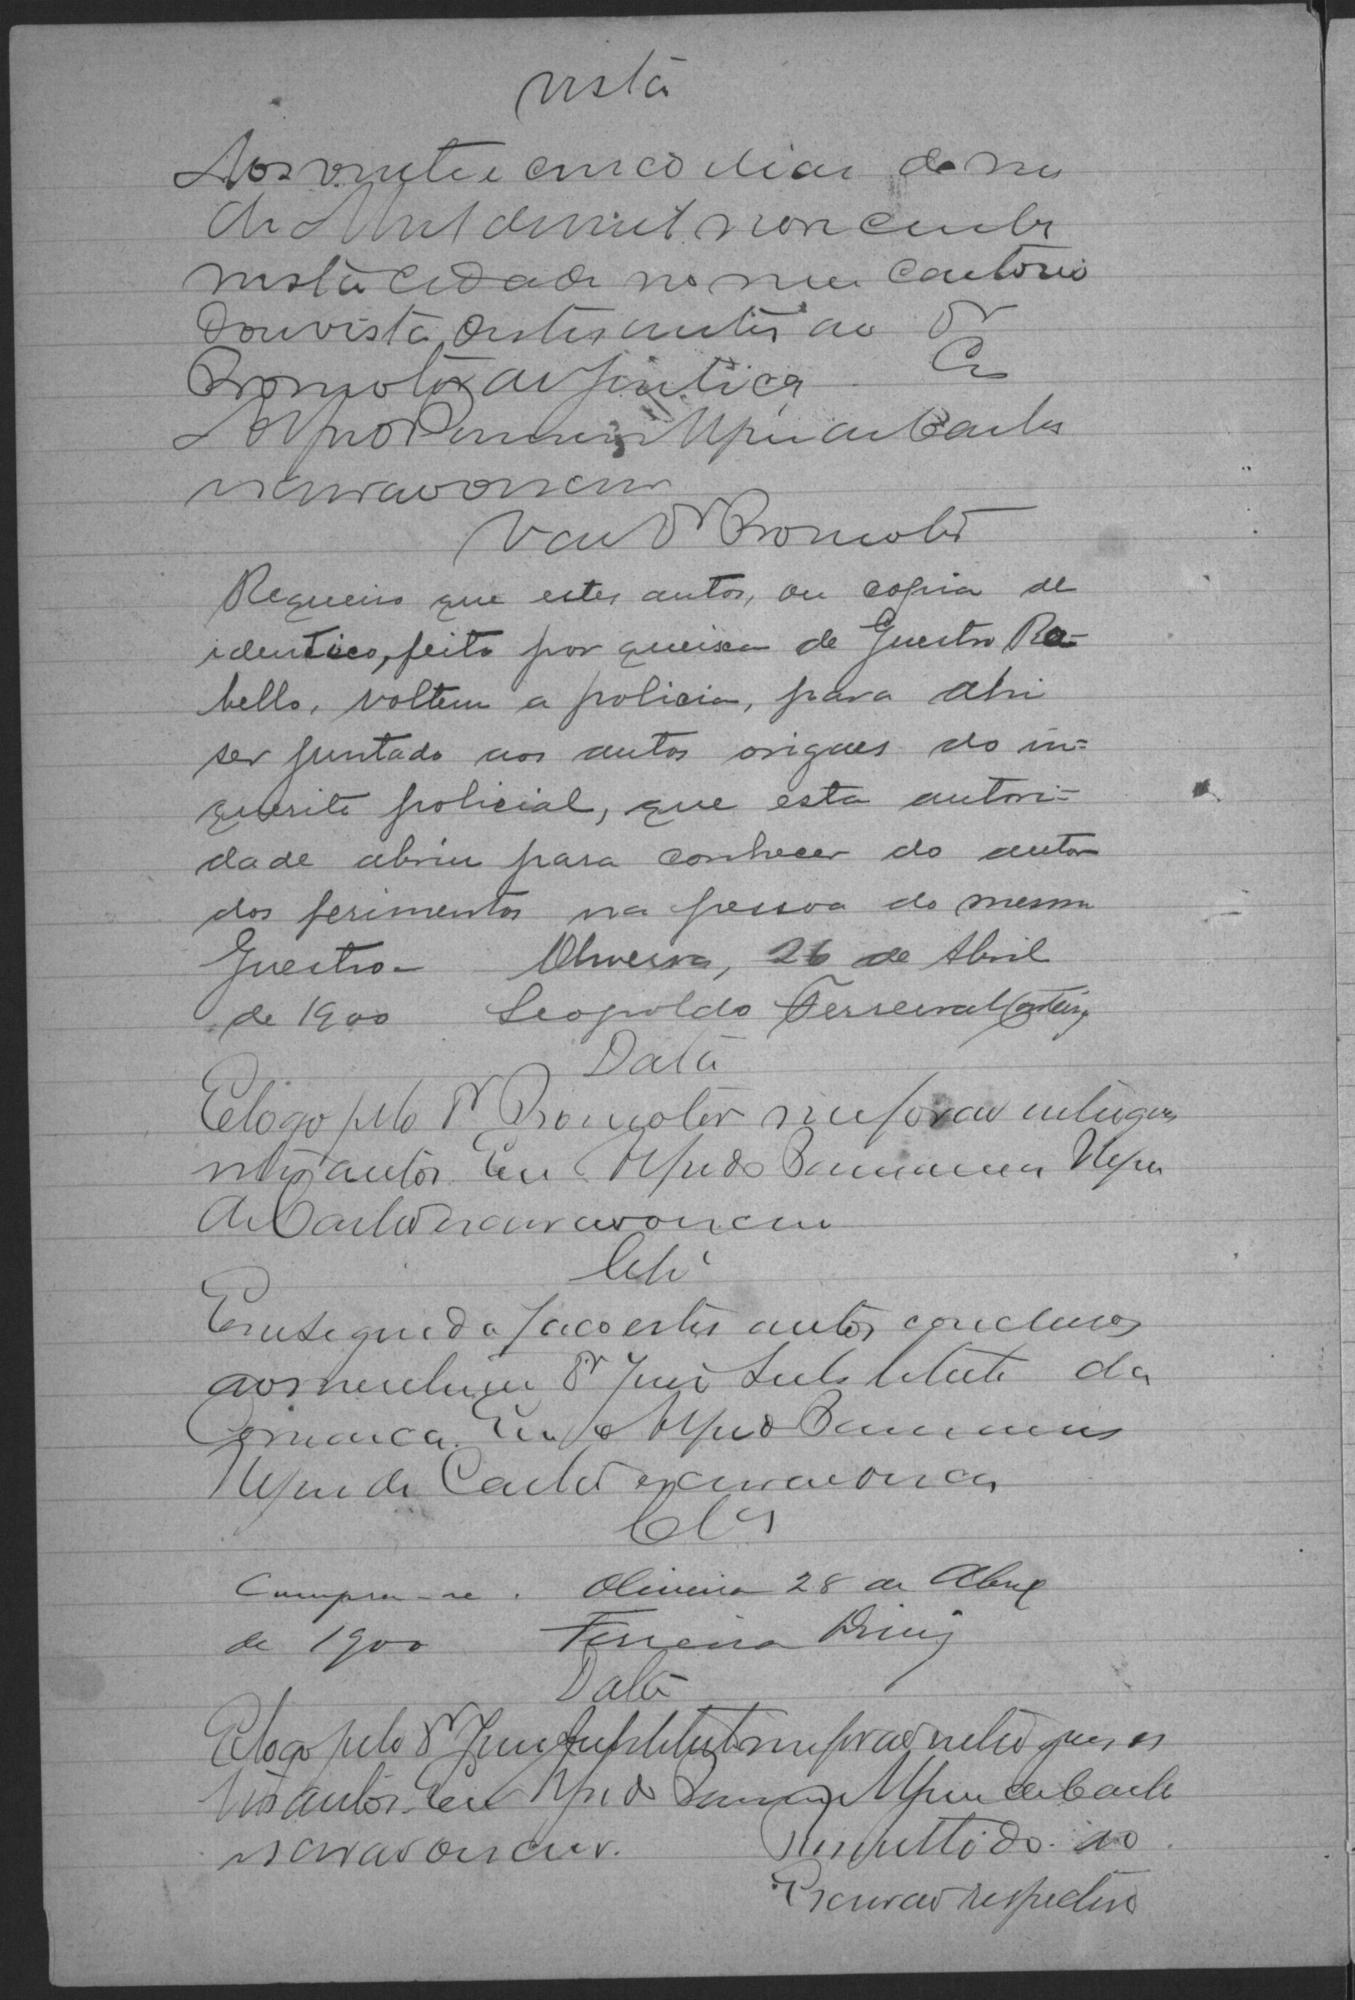 Vista
Aos vinte e cinco dias do mes
de Abril de mil novecentos
nesta cidade no meu cartorio
dou vista destes autos ao Dr
Promotor de Justiça Eu
Alfredo de Castro
escrivão o escrevi
V ao Dr Promotor
Requeiro que estes autos, ou copia de
identico, feito por queixa de Guestro Ra-
bello, voltem a policia, para ahi
ser juntado aos autos origaes do in-
querito policial, que esta autori-
dade abriu para conhecer do autor
dos ferimentos na pessoa do mesmo
Guestro - Oliveira, 26 de Abril
de 1900 Leopoldo Ferreira
Data
E logo pelo Dr Promotor me forão entregues
estes autos. Eu Alfredo
de Castro escrivão o escrevi
Cls
Em seguida faço estes autos conclusos
ao Dr Juiz Substituto da
Comarca. Eu Alfredo
de Castro escrivão o escrevi
Cls
Cumpra-se. Oliveira 28 de Abril
de 1900 Ferreira Diniz
Data
E logo pelo Dr Juiz Substituto me forão entregues es
tes autos. Eu Alfredo de Castro
escrivão o escrevi. Remettido ao
Escrivão respectivo